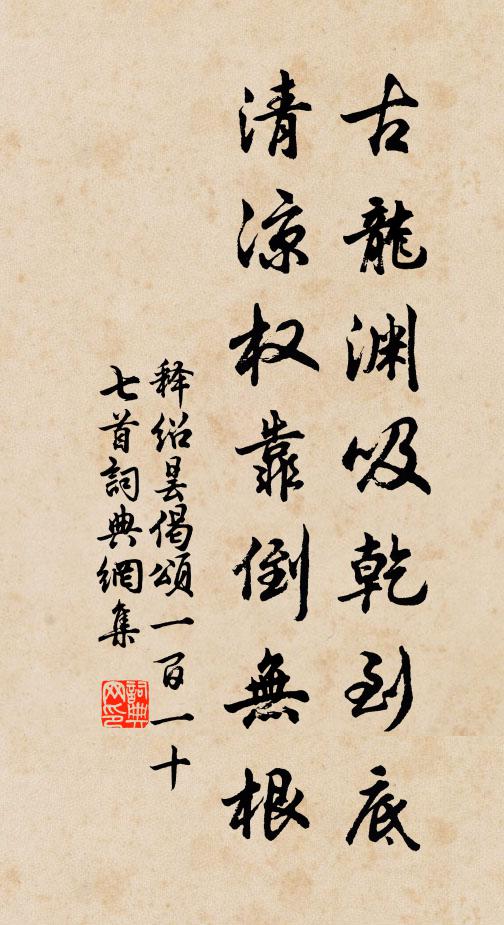 古龍渊吸乾到底
清涼权靠倒無根
释绍昙偈頌一百一十
七首詞典網集
詞典网印